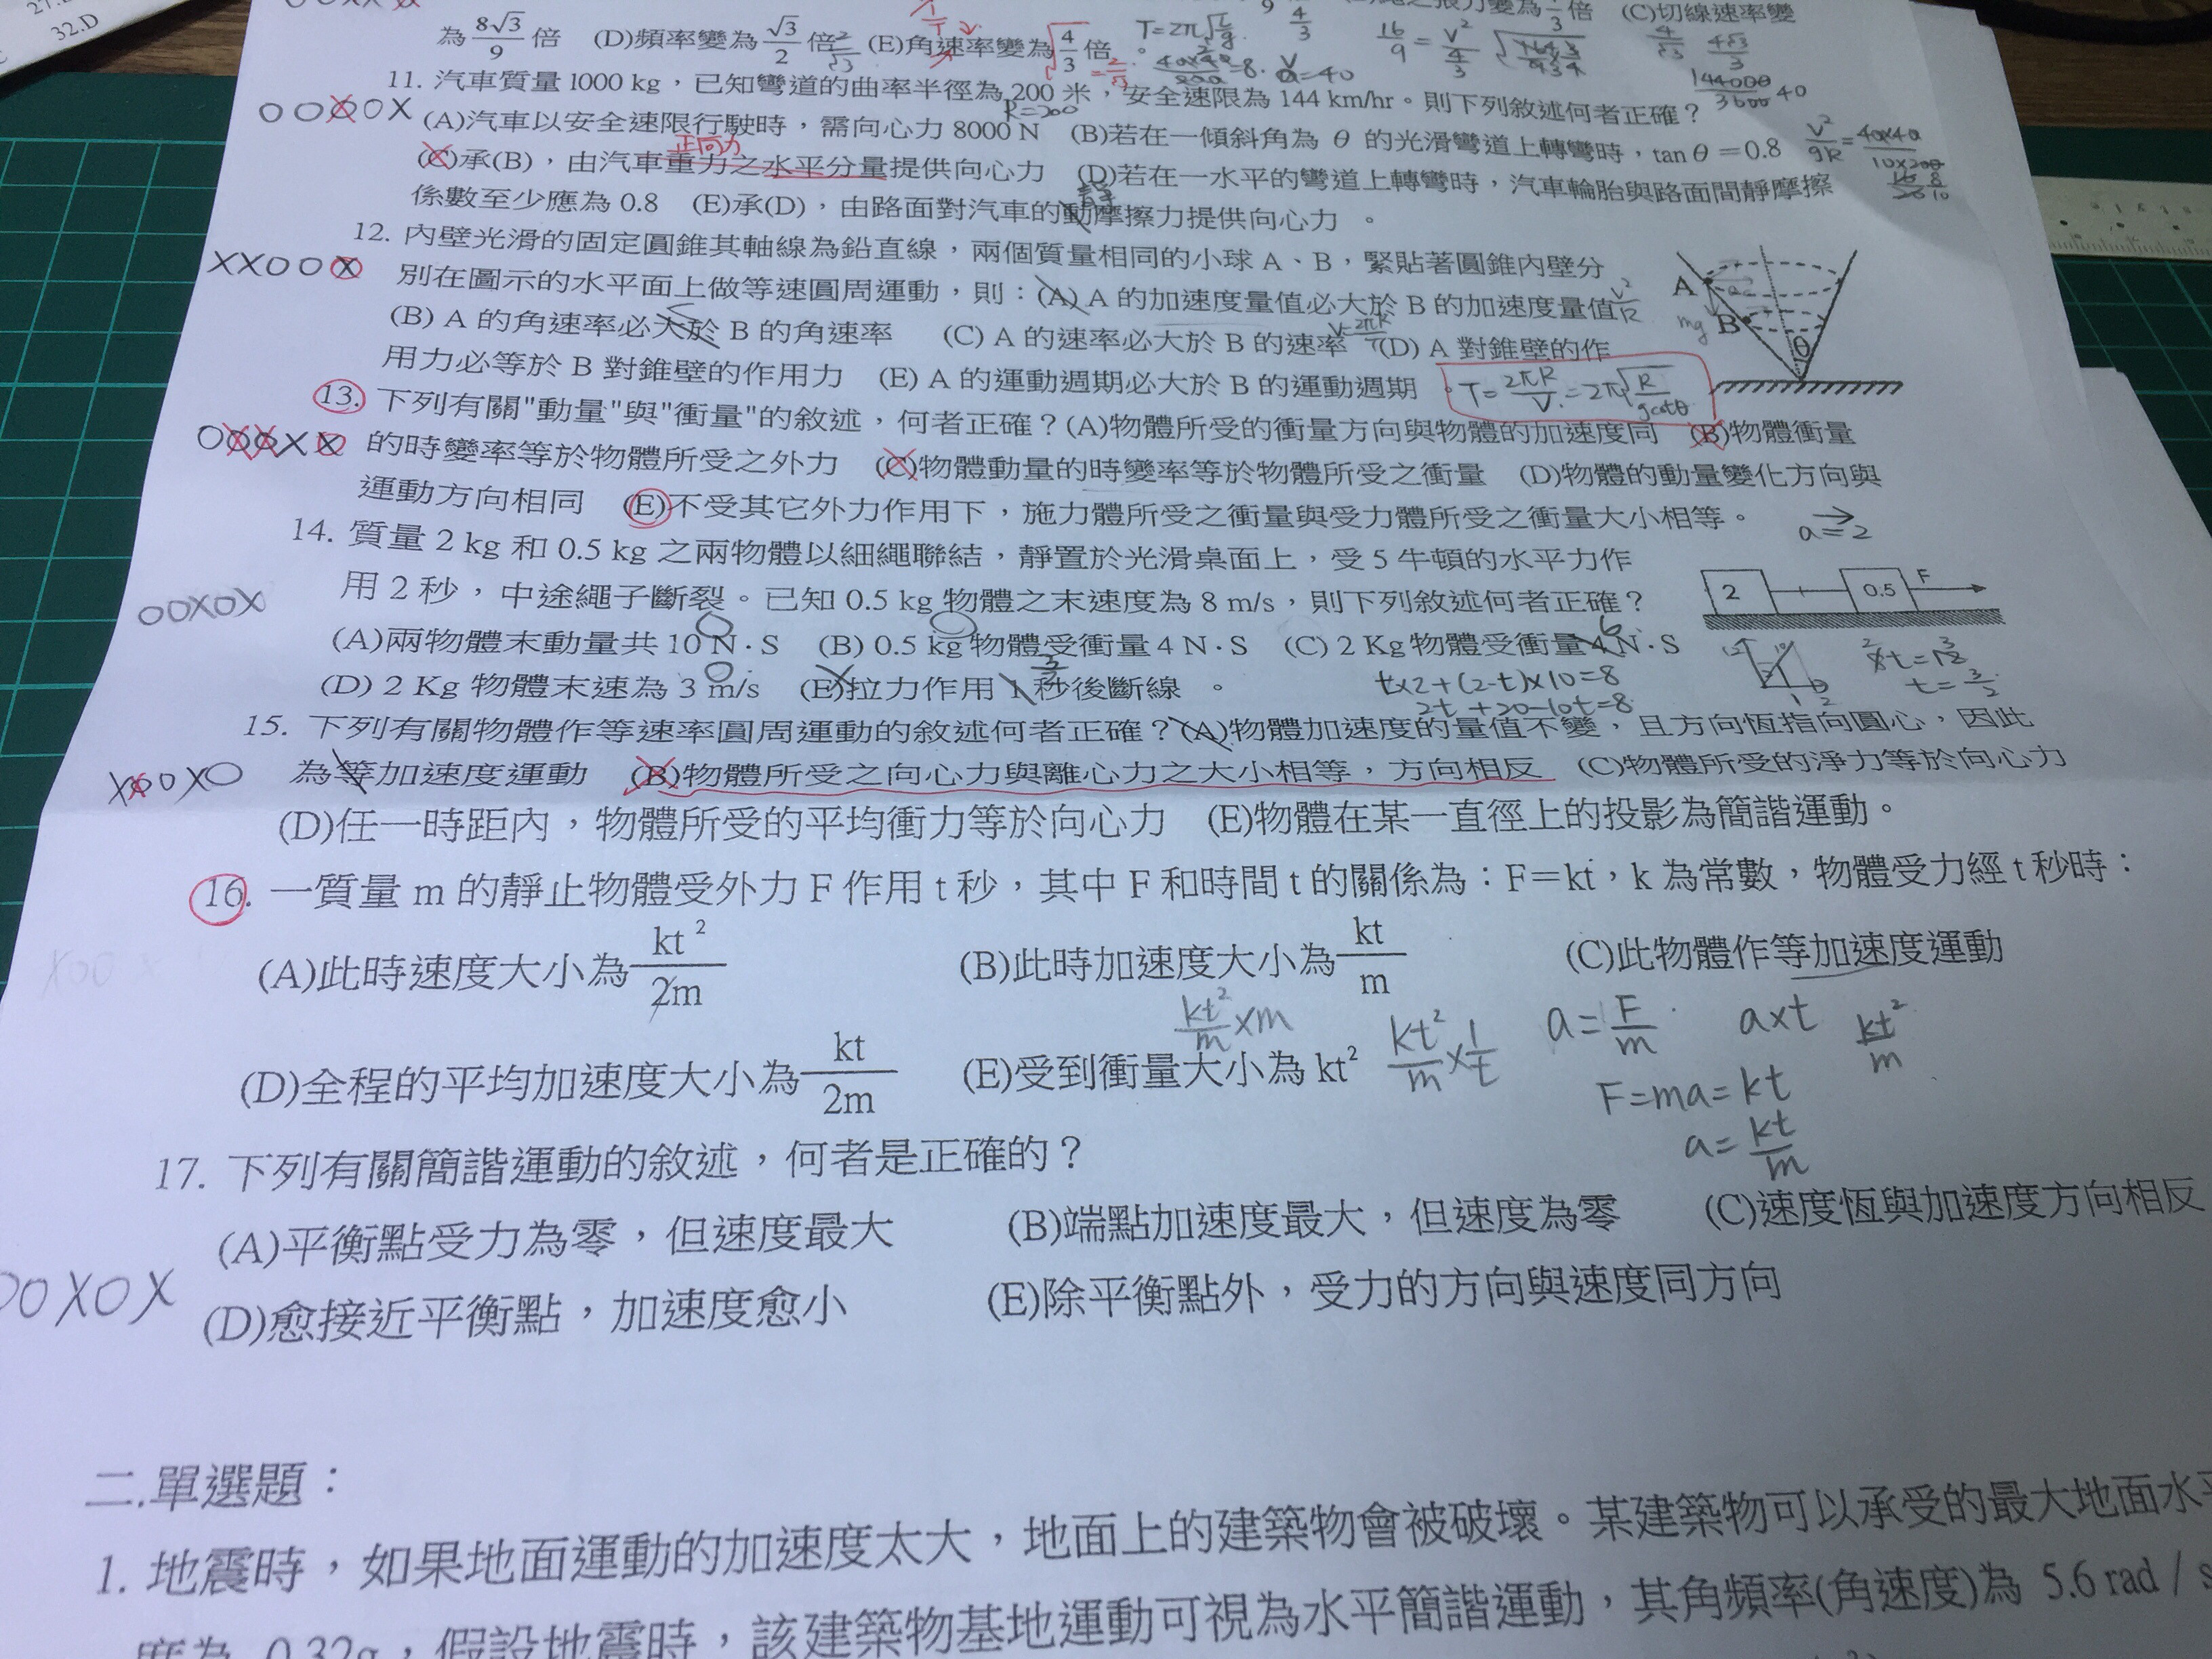 32.D
為 8√3/9 倍 (D)頻率變為 √3/2 倍 (E)角速率變為 √4/3 倍。 T=2π√L/g 4/3 16/9 = V²/4/3 (C)切線速率變
11. 汽車質量 1000 kg，已知彎道的曲率半徑為 200 米，安全速限為 144 km/hr。則下列敘述何者正確？ R=200 144000/3600 40
OOXOX (A)汽車以安全速限行駛時，需向心力 8000 N (B)若在一傾斜角為 θ 的光滑彎道上轉彎時，tan θ＝0.8 V²/gR = 40×40/10×200
(C)承(B)，由汽車重力之水平分量提供向心力 (D)若在一水平的彎道上轉彎時，汽車輪胎與路面間靜摩擦 正向力
係數至少應為 0.8 (E)承(D)，由路面對汽車的動摩擦力提供向心力 。 靜
12. 內壁光滑的固定圓錐其軸線為鉛直線，兩個質量相同的小球 A、B，緊貼著圓錐內壁分
XXOOX 別在圖示的水平面上做等速圓周運動，則：(A) A 的加速度量值必大於 B 的加速度量值 V²/R
(B) A 的角速率必大於 B 的角速率 (C) A 的速率必大於 B 的速率 V=2πR/T (D) A 對錐壁的作
用力必等於 B 對錐壁的作用力 (E) A 的運動週期必大於 B 的運動週期 。 T=2πR/V=2π√R/gcotθ
A
mg B
θ
13. 下列有關"動量"與"衝量"的敘述，何者正確？(A)物體所受的衝量方向與物體的加速度同 (B)物體衝量
的時變率等於物體所受之外力 (C)物體動量的時變率等於物體所受之衝量 (D)物體的動量變化方向與
運動方向相同 (E)不受其它外力作用下，施力體所受之衝量與受力體所受之衝量大小相等。
14. 質量 2 kg 和 0.5 kg 之兩物體以細繩聯結，靜置於光滑桌面上，受 5 牛頓的水平力作 a=2
用 2 秒，中途繩子斷裂。已知 0.5 kg 物體之末速度為 8 m/s，則下列敘述何者正確？ 2 0.5 F
OOXOX (A)兩物體末動量共 10 N · S (B) 0.5 kg 物體受衝量 4 N · S (C) 2 Kg 物體受衝量 4 N · S 6
(D) 2 Kg 物體末速為 3 m/s (E)拉力作用 1 秒後斷線 。 t×2+(2-t)×10=8
2t+20-10t=8 t=3/2
15. 下列有關物體作等速率圓周運動的敘述何者正確？(A)物體加速度的量值不變，且方向恆指向圓心，因此
為等加速度運動 (B)物體所受之向心力與離心力之大小相等，方向相反 (C)物體所受的淨力等於向心力
(D)任一時距內，物體所受的平均衝力等於向心力 (E)物體在某一直徑上的投影為簡諧運動。
16. 一質量 m 的靜止物體受外力 F 作用 t 秒，其中 F 和時間 t 的關係為：F＝kt，k 為常數，物體受力經 t 秒時：
(A)此時速度大小為 kt²/2m (B)此時加速度大小為 kt/m (C)此物體作等加速度運動
kt²/m ×m kt²/m × 1/t a=F/m a×t kt²/m
(D)全程的平均加速度大小為 kt/2m (E)受到衝量大小為 kt²
F=ma=kt
a=kt/m
17. 下列有關簡諧運動的敘述，何者是正確的？
(A)平衡點受力為零，但速度最大 (B)端點加速度最大，但速度為零 (C)速度恆與加速度方向相反
OOXOX (D)愈接近平衡點，加速度愈小 (E)除平衡點外，受力的方向與速度同方向
二.單選題：
1. 地震時，如果地面運動的加速度太大，地面上的建築物會被破壞。某建築物可以承受的最大地面水平
度為 0.32g，假設地震時，該建築物基地運動可視為水平簡諧運動，其角頻率(角速度)為 5.6 rad / s